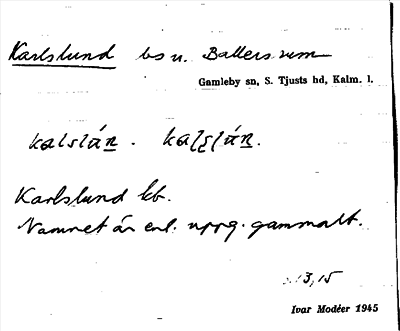 Karlslund bs u. Ballersrum
Gamleby sn, S. Tjusts hd, Kalm. l.
Karlslund kb.
Namnet är enl. uppg. gammalt.
13,15
Ivar Modéer 1945